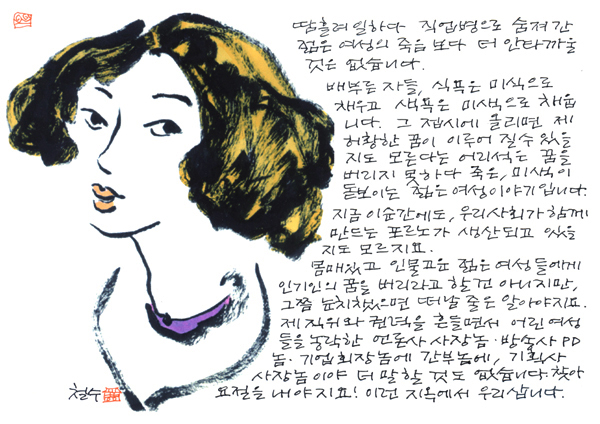 땀흘려 일하다 직업병으로 숨져간
젊은 여성의 죽음보다 더 안타까울
것은 없습니다.
배부른 자들, 식욕은 미식으로
채우고 색욕은 미색으로 채웁
니다. 그 접시에 올리면 제
허황한 꿈이 이루어 질수 있을
지도 모른다는 어리석은 꿈을
버리지 못하다 죽은, 미색이
돋보이는 젊은 여성이야기 입니다.
지금 이순간에도, 우리사회가 함께
만드는 포르노가 생산되고 있을
지도 모르지요.
몸매있고 인물고운 젊은 여성들에게
인기인의 꿈을 버리라고 할건 아니지만,
그쯤 눈치챘으면 떠날 줄은 알아야지요.
제 직위와 권력을 흔들면서 어린여성
들을 농락한 언론사 사장놈·방송사 PD
놈·기업회장놈에 간부놈에, 기획사
사장놈이야 더 말할 것도 없습니다. 찾아
요절을 내야지요! 이런 지옥에서 우리삽니다.
철수